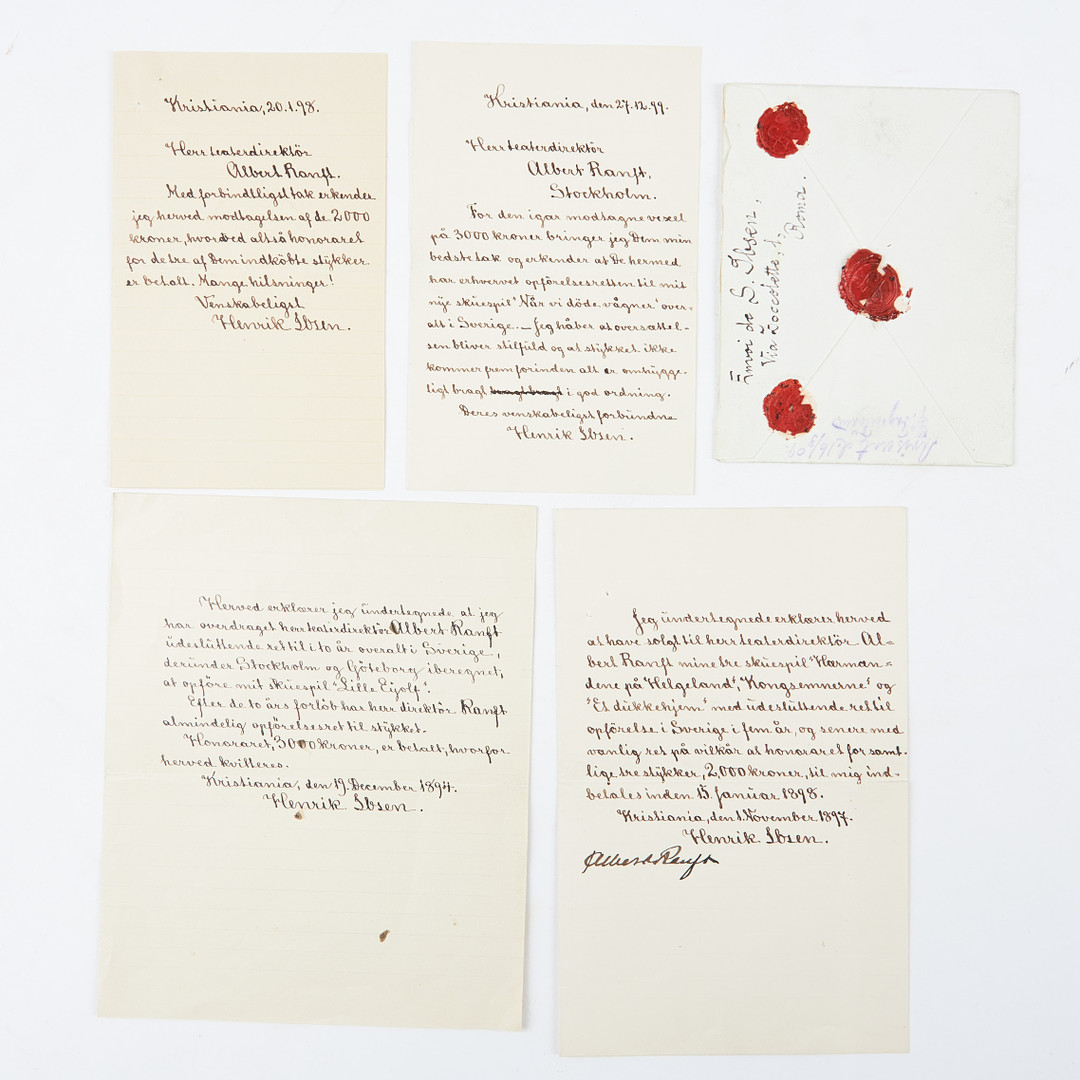 Kristiania, 20.1.98.
Herr teaterdirektör
Albert Ranft.
Med forbindtligst tak erkender
jeg herved modtagelsen af de 2000
kroner, hvorved altså honoraret
for de tre af Dem indköbte stykker
er betalt. Mange hilsninger!
Venskabeligst
Henrik Ibsen.
Kristiania, den 27.12.99.
Herr teaterdirektör
Albert Ranft,
Stockholm.
For den igår modtagne vexel
på 3000 kroner bringer jeg Dem min
bedste tak og erkender at De hermed
har erhvervet opförelsesretten til mit
nye skuespil "Når vi döde vågner" over-
alt i Sverige. – Jeg håber at oversættel-
sen bliver stilfuld og at stykket ikke
kommer frem forinden alt er omhygge-
ligt bragt i god ordning.
Deres venskabeligst forbundne
Henrik Ibsen.
Envoi de S. Ibsen,
Via Zoccolette, 1,
Roma.
Herved erklærer jeg undertegnede at jeg
har overdraget herr teaterdirektör Albert Ranft
udesluttende ret til i to år overalt i Sverige,
derunder Stockholm og Göteborg iberegnet,
at opföre mit skuespil "Lille Eyolf".
Efter de to års forlöb har herr direktör Ranft
almindelig opförelsesret til stykket.
Honoraret, 3000 kroner, er betalt, hvorfor
herved kvitteres.
Kristiania, den 19. December 1894.
Henrik Ibsen.
Jeg undertegnede erklærer herved
at have solgt til herr teaterdirektör Al-
bert Ranft mine tre skuespil "Hærmæn-
dene på Helgeland", "Kongsemnerne" og
"Et dukkehjem" med udesluttende ret til
opförelse i Sverige i fem år, og senere med
vanlig ret på vilkår at honoraret for samt-
lige tre stykker, 2,000 kroner, til mig ind-
betales inden 15. Januar 1898.
Kristiania, den 1. November 1897.
Henrik Ibsen.
Albert Ranft